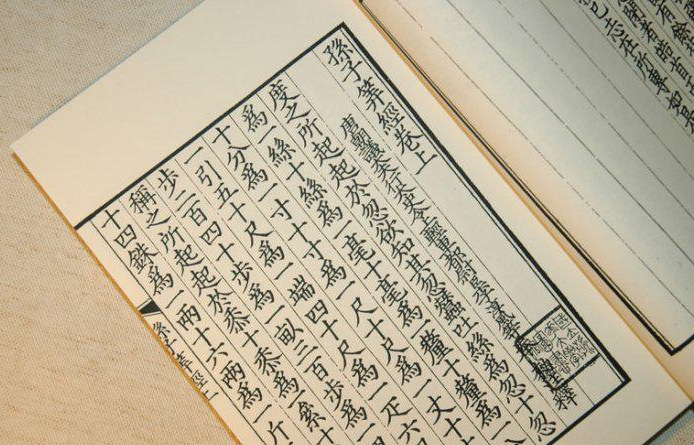 有餘
者皓首
已志在所專如是
孫子筭經卷上
唐朝議大夫行太史令上輕車都尉臣李淳風等
釋
度之所起起於忽欲知其忽蠶吐絲為忽十忽
為一絲十絲為一毫十毫為一釐十釐為
十分為一寸十寸為一尺十尺為一丈十
一引五十尺為一端四十尺為一疋六
步二百四十步為一畝三百步為
稱之所起起於黍十黍為一絫十
十四銖為一兩十六兩為一斤
孫子筭經上